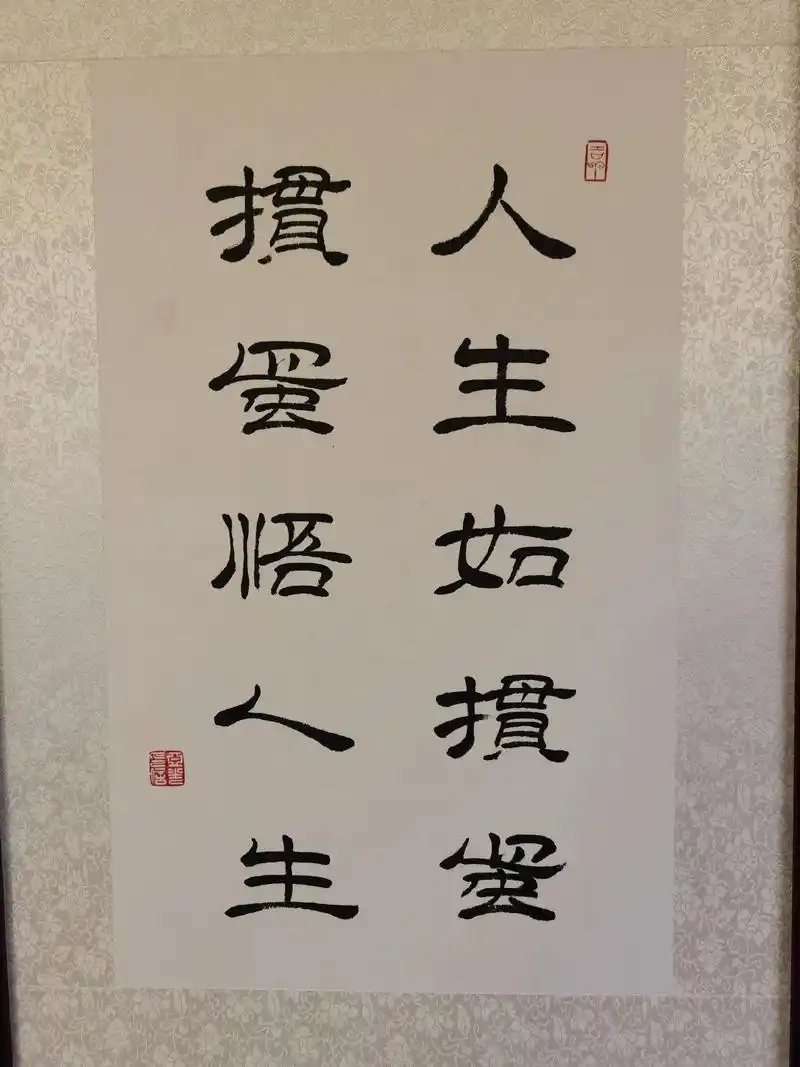 人生如摜蛋
摜蛋悟人生